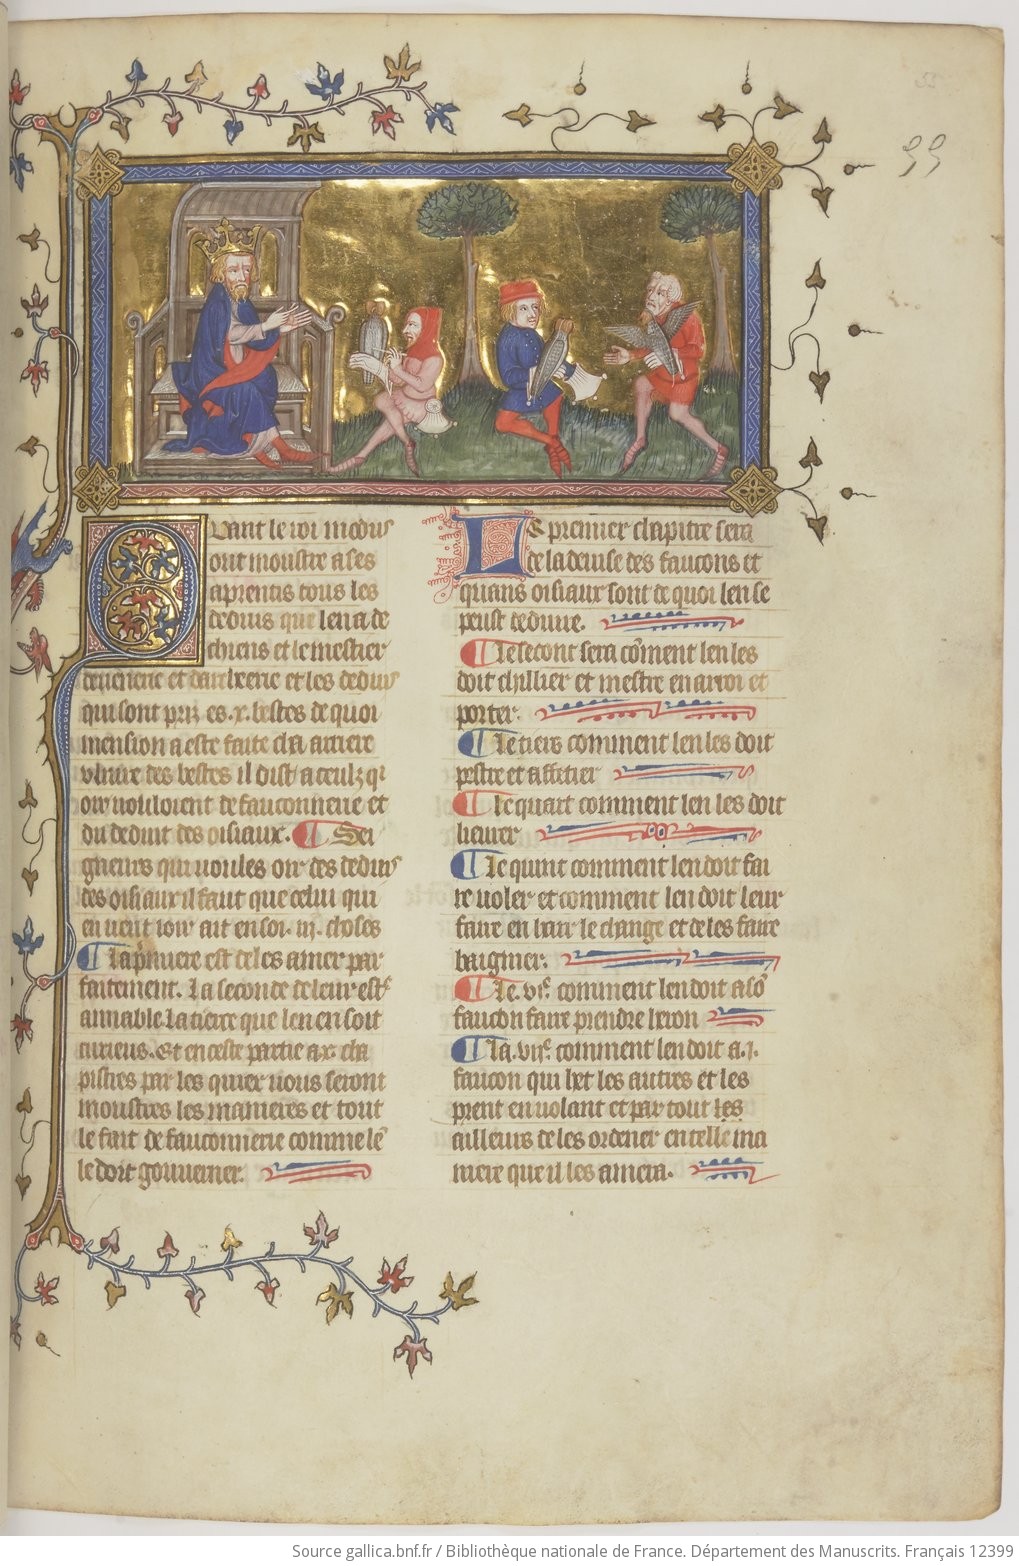 55
99
Quant le roi modus
out moustre a ses
aprentis tous les
deduis que len a de
chiens et le mestier
de venerie et darcherie et les deduis
qui sont pris es .x. bestes de quoi
mension a este faite ch'a arriere
il dist a ceulz q'
ouir vouloient de fauconnerie et
du deduit des oisiaux. ¶ Sei
gneurs qui voules oir des deduis
des oisiaux il faut que celui qui
en veut ioir ait en soi .iij. choses
¶ La p'miere est de les amer par
faitement. La seconde de leur est'
amiable. La tierce que len en soit
curieus. Et en ceste partie a .x. cha
pistres par les quiex vous seront
moustres les manieres et tout
le fait de fauconnerie comme le
le doit gouverner.
Le premier chapitre sera
de la devise des faucons et
quans oisiaux sont de quoi len se
peust deduire.
¶ Le secont sera cōment len les
doit chillier et mestre en arroi et
porter.
¶ Le tiers comment len les doit
pestre et affetier
¶ Le quart comment len les doit
¶ Le quint comment len doit fai
re voler et comment len doit leur
faire en hair le change et de les faire
baignier.
¶ Le .vi^e. comment len doit a sō
faucon faire prendre heron
¶ La .vii^e. comment len doit a .j.
faucon qui het les autres et les
prent en volant et par tout les
ailleurs de les ordener en telle ma
niere que il les amera.
Source gallica.bnf.fr / Bibliothèque nationale de France. Département des Manuscrits. Français 12399